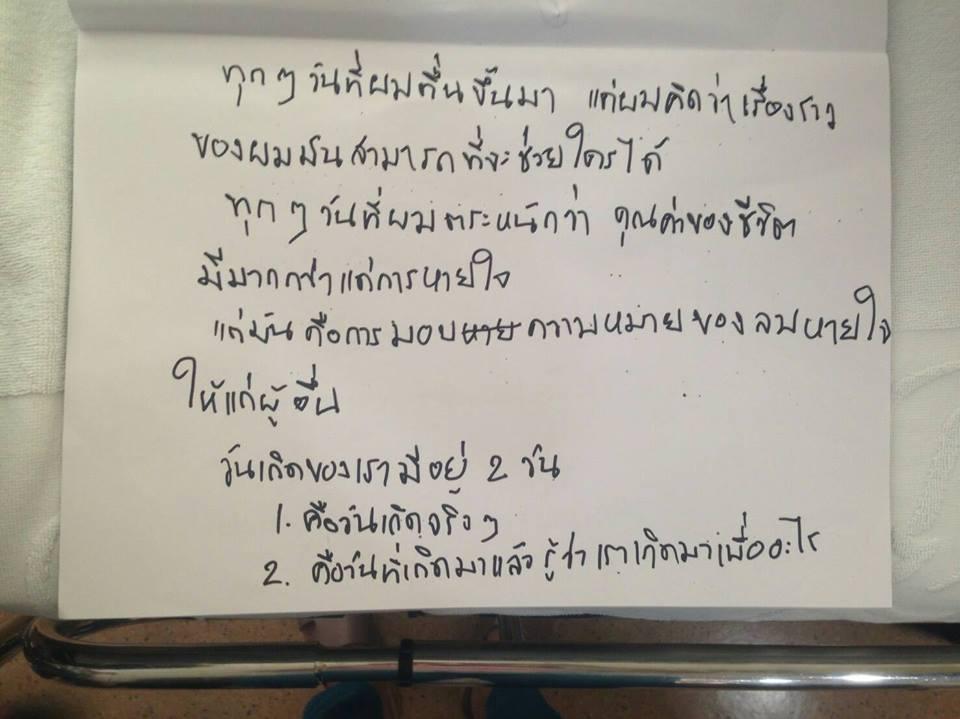 ทุกๆวันที่ผมตื่นขึ้นมา แต่ผมคิดว่าเรื่องราว
ของผมมันสามารถที่จะช่วยใครได้
ทุกๆวันที่ผมตระหนักว่า คุณค่าของชีวิต
มีมากกว่าแต่การหายใจ
แต่มันคือการมอบความหมายของลมหายใจ
ให้แก่ผู้อื่น
วันเกิดของเรามีอยู่ 2 วัน
1. คือวันเกิดจริงๆ
2. คือวันที่เกิดมาแล้วรู้ว่าเราเกิดมาเพื่ออะไร